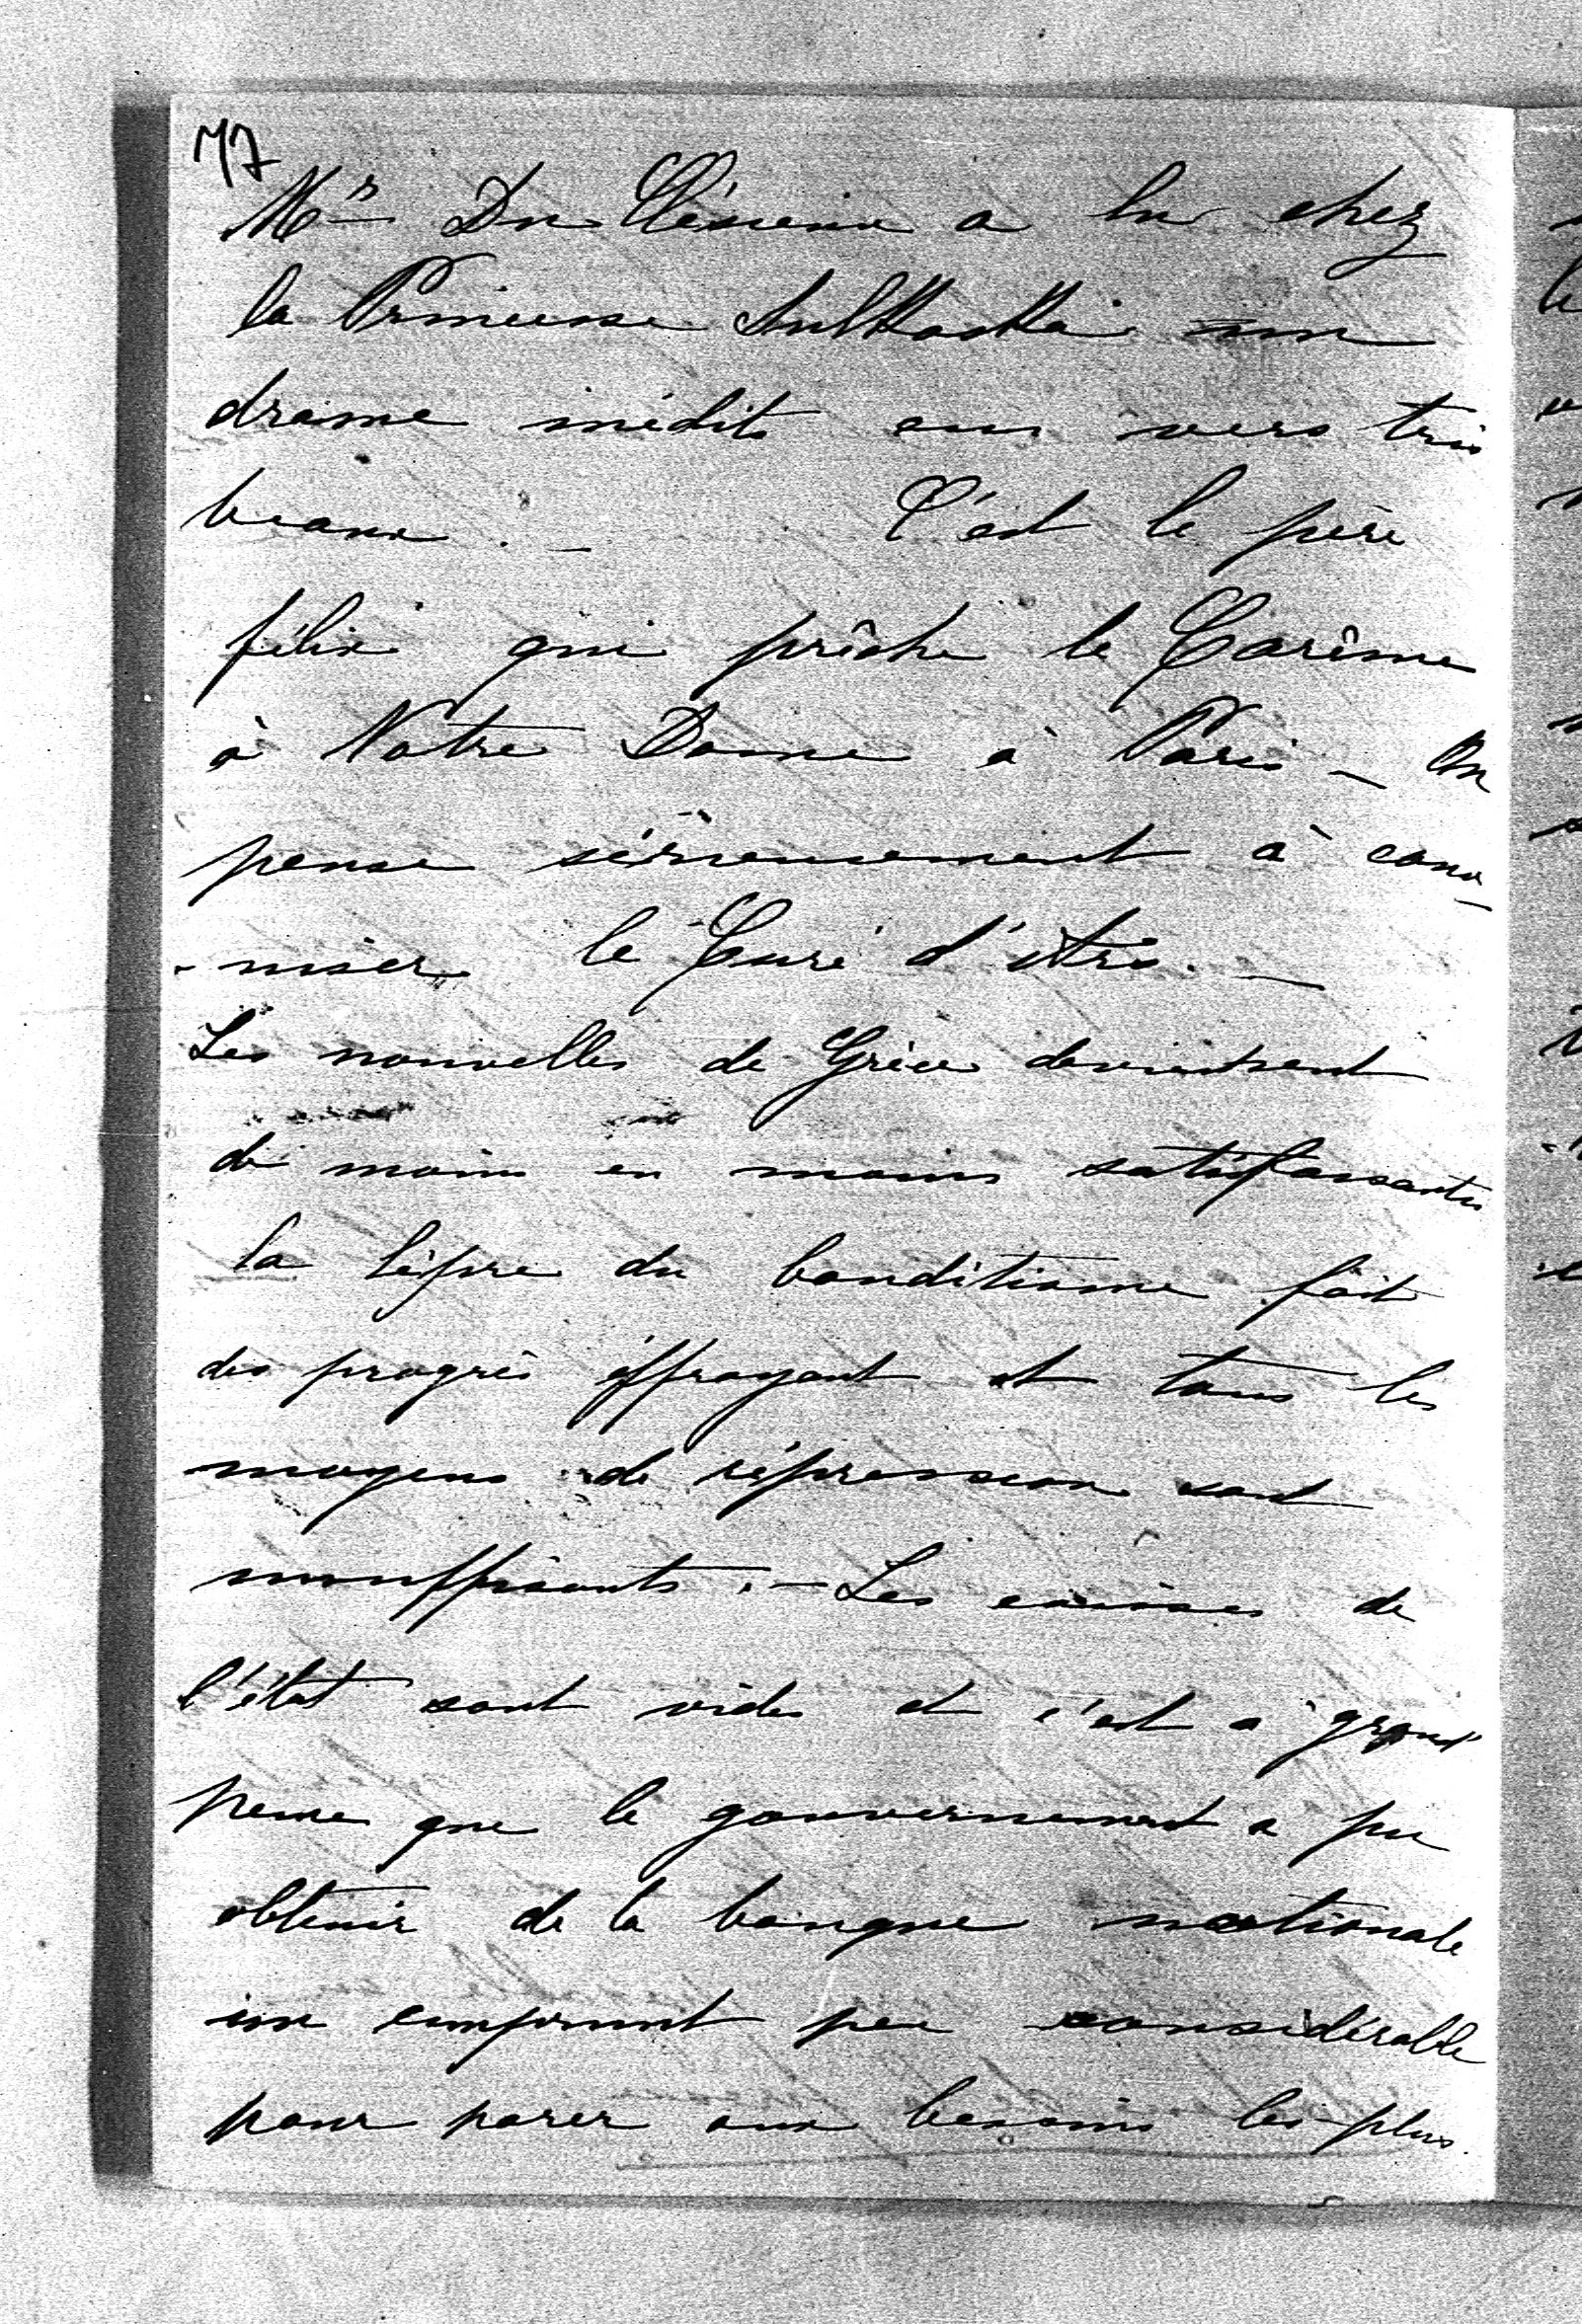 77
Mr Du Clésieux a lu chez
la Princesse Sulkoska un
drame inédits en vers très
beaux. _ C'est le père
félix qui prêche le Carême
à Notre Dame à Paris _ On
pense sérieusement à cano_
-niser le Curé d'Ars. _
Les nouvelles de Grèce deviennent
de moins en moins satisfaisantes
la lèpre du banditisme fait
des progrès éffrayant et tous les
moyens de répression sont
insuffisants. - Les caisses de
l'état sont vides et c'est a grand
peine que le gouvernement a pu
obtenir de la banque nationale
un emprunt peu considérable
pour parer aux besoins les plus